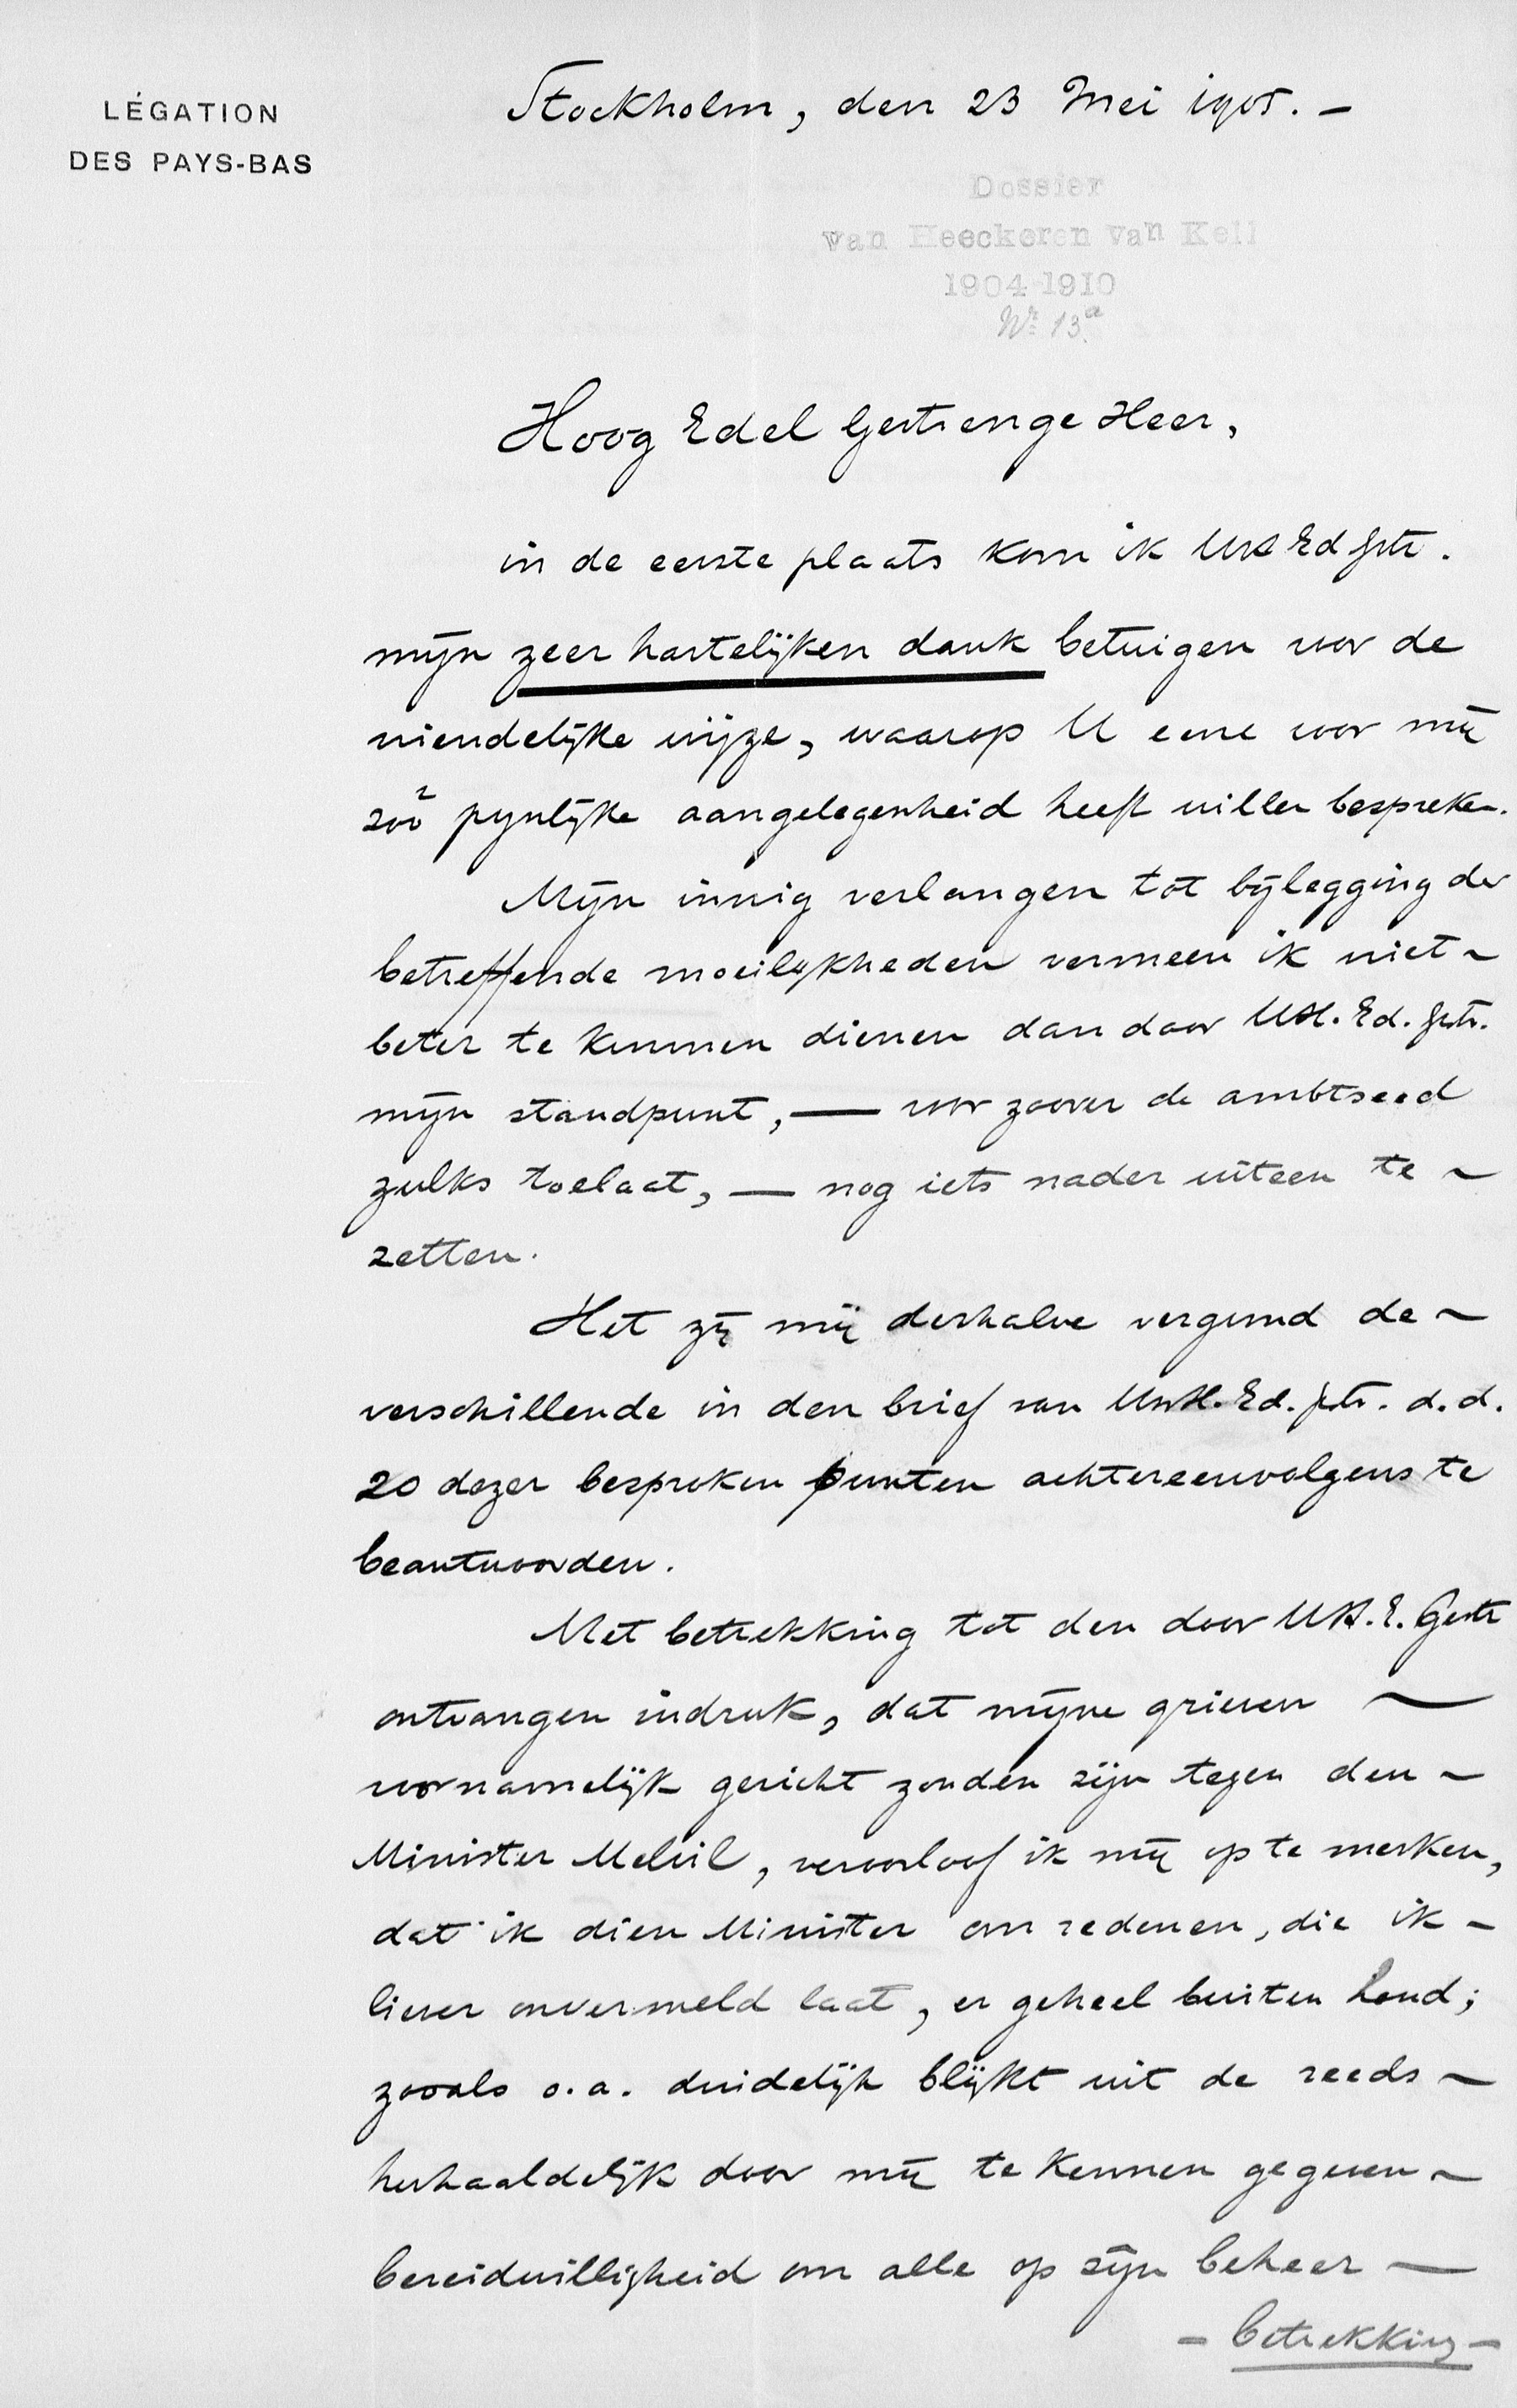 LÉGATION
DES PAYS-BAS
Stockholm, den 23 Mei 1905. –
Dossier
van Heeckeren van Kell
1904-1910
Nr. 13a
Hoog Edel Gestrenge Heer,
in de eerste plaats kom ik UH Ed Gstr.
mijn zeer hartelijken dank betuigen voor de
vriendelijke wijze, waarop U eene voor mij
zóó pijnlijke aangelegenheid heeft willen bespreken.
Mijn innig verlangen tot bijlegging der
betreffende moeilijkheden vermeen ik niet ~
beter te kunnen dienen dan door UH. Ed. Gstr.
mijn standpunt, — voor zoover de ambtseed
zulks toelaat, — nog iets nader uiteen te ~
zetten.
Het zij mij derhalve vergund de ~
verschillende in den brief van UwH. Ed. Gstr. d.d.
20 dezer besproken punten achtereenvolgens te
beantwoorden.
Met betrekking tot den door UH. E. Gestr
ontvangen indruk, dat mijne grieven ~
voornamelijk gericht zouden zijn tegen den ~
Minister Melvil, veroorloof ik mij op te merken,
dat ik dien Minister om redenen, die ik –
liever onvermeld laat, er geheel buiten houd;
zooals o.a. duidelijk blijkt uit de reeds ~
herhaaldelijk door mij te kennen gegeven ~
bereidwilligheid om alle op zijn beheer —
– betrekking –